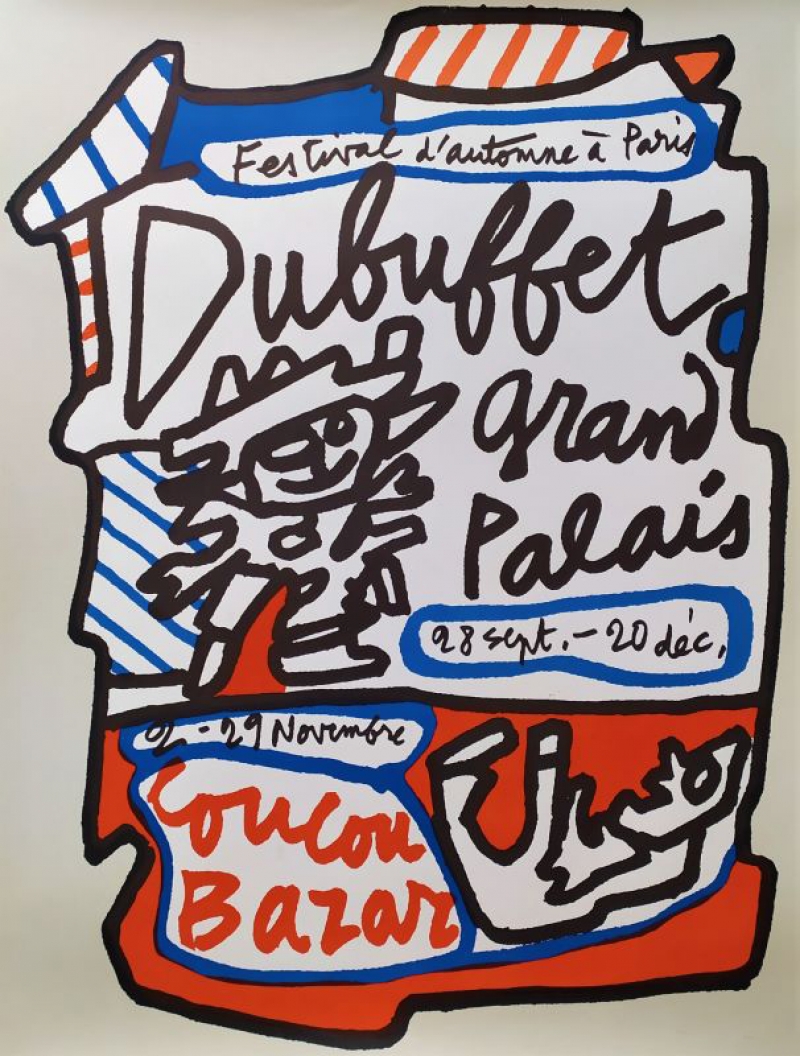 Festival d'automne à Paris
Dubuffet
grand
Palais
28 sept. - 20 déc.
2 - 29 Novembre
Coucou
Bazar